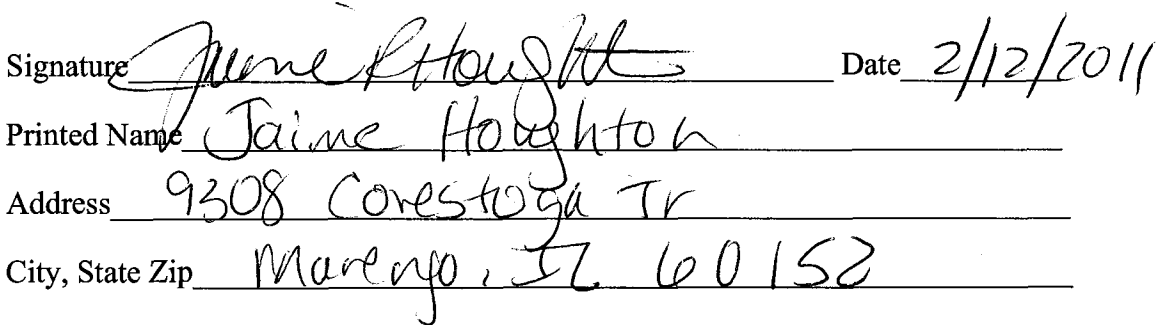 Signature Jaime R Houghton Date 2/12/2011
Printed Name Jaime Houghton
Address 9308 Conestoga Tr
City, State Zip Marengo, IL 60152